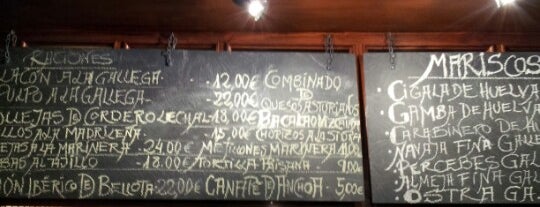 RACIONES
LACÓN A LA GALLEGA 12,00€
PULPO A LA GALLEGA 22,00€
CORDERO LECHAL 18,00€
A LA MADRILEÑA 15,00€
A LA MARINERA 24,00€
AL AJILLO 18.00€
IBÉRICO DE BELLOTA 22,00€
COMBINADO
DE
QUESOS ASTURIANOS
BACALAO
CHORIZOS A LA
MEJILLONES MARINERA
TORTILLA PAISANA
CANAPÉ DE ANCHOA 5,00€
MARISCOS
CIGALA DE HUELVA
GAMBA DE HUELVA
CARABINERO DE
NAVAJA FINA GALL
PERCEBES GAL
ALMEJA FINA GAL
OSTRA GA